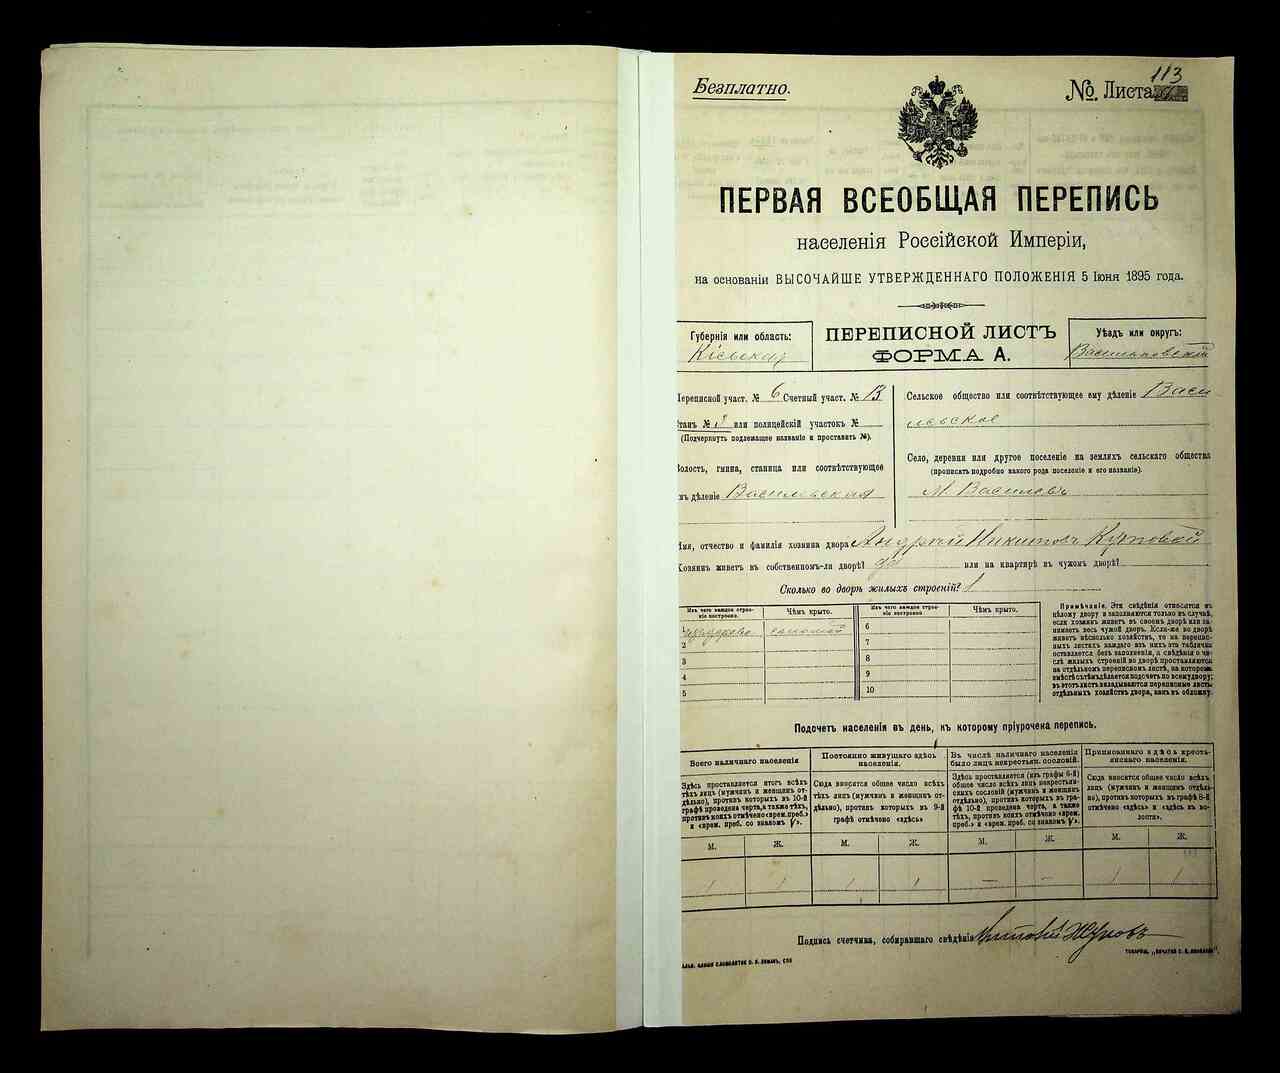 Безплатно.
№ Листа 113
ПЕРВАЯ ВСЕОБЩАЯ ПЕРЕПИСЬ
населенія Россійской Имперіи,
на основаніи ВЫСОЧАЙШЕ УТВЕРЖДЕННАГО ПОЛОЖЕНІЯ 5 Іюня 1895 года.
Губернія или область:
Кіевская
ПЕРЕПИСНОЙ ЛИСТЪ
ФОРМА А.
Уѣздъ или округъ:
Васильковскій
Переписной участ. № 6 Счетный участ. № 13
Станъ № или полицейскій участокъ №
(Подчеркнуть подлежащее названіе и проставить №).
Волость, гмина, станица или соотвѣтствующее
имъ дѣленіе Васильевская
Сельское общество или соотвѣтствующее ему дѣленіе Васи
льевское
Село, деревня или другое поселеніе на земляхъ сельскаго общества
(прописать подробно какого рода поселеніе и его названіе).
М. Василевъ
Имя, отчество и фамилія хозяина двора Андрей Никитовъ
Хозяинъ живетъ въ собственномъ-ли дворѣ? да или на квартирѣ въ чужомъ дворѣ?
Сколько во дворѣ жилыхъ строеній? 1
Изъ чего каждое строе-
ніе построено.
Чѣмъ крыто.
1 соломой
2
3
4
5
Изъ чего каждое строе-
ніе построено
Чѣмъ крыто.
6
7
8
9
10
Примѣчаніе. Эти свѣдѣнія относятся къ
цѣлому двору и заполняются только въ случаѣ,
если хозяинъ живетъ въ своемъ дворѣ или за-
нимаетъ весь чужой дворъ. Если-же во дворѣ
живетъ нѣсколько хозяйствъ, то на перепис-
ныхъ листахъ каждаго изъ нихъ эта табличка
оставляется безъ заполненія, а свѣдѣнія о чи-
слѣ жилыхъ строеній во дворѣ проставляются
на отдѣльномъ переписномъ листѣ, на которомъ
вмѣстѣ съ тѣмъ дѣлается подсчетъ по всему двору;
въ этотъ листъ вкладываются переписные листы
отдѣльныхъ хозяйствъ двора, какъ въ обложку.
Подсчетъ населенія въ день, къ которому пріурочена перепись.
Всего наличнаго населенія
Здѣсь проставляется итогъ всѣхъ
тѣхъ лицъ (мужчинъ и женщинъ от-
дѣльно), противъ которыхъ въ 10-й
графѣ проведена черта, а также тѣхъ,
противъ коихъ отмѣчено «врем. преб.»
и «врем. преб. со знакомъ V».
Постоянно живущаго здѣсь
населенія.
Сюда вносится общее число всѣхъ
тѣхъ лицъ (мужчинъ и женщинъ от-
дѣльно), противъ которыхъ въ 9-й
графѣ отмѣчено «здѣсь»
Въ числѣ наличнаго населенія
было лицъ некрестьян. сословій.
Здѣсь проставляется (изъ графы 6-й)
общее число всѣхъ лицъ некрестьян-
скихъ сословій (мужчинъ и женщинъ
отдѣльно), противъ которыхъ въ гра-
фѣ 10-й проведена черта, а также
тѣхъ, противъ коихъ отмѣчено «врем.
преб.» и «врем. преб. со знакомъ V».
Приписаннаго здѣсь кресть-
янскаго населенія.
Сюда вносится общее число всѣхъ
лицъ (мужчинъ и женщинъ отдѣль-
но), противъ которыхъ въ графѣ 8-й
отмѣчено «здѣсь» и «здѣсь въ во-
лости».
М. Ж. М. Ж. М. Ж. М. Ж.
1 1 1 1 — — 1 1
Подпись счетчика, собиравшаго свѣдѣнія